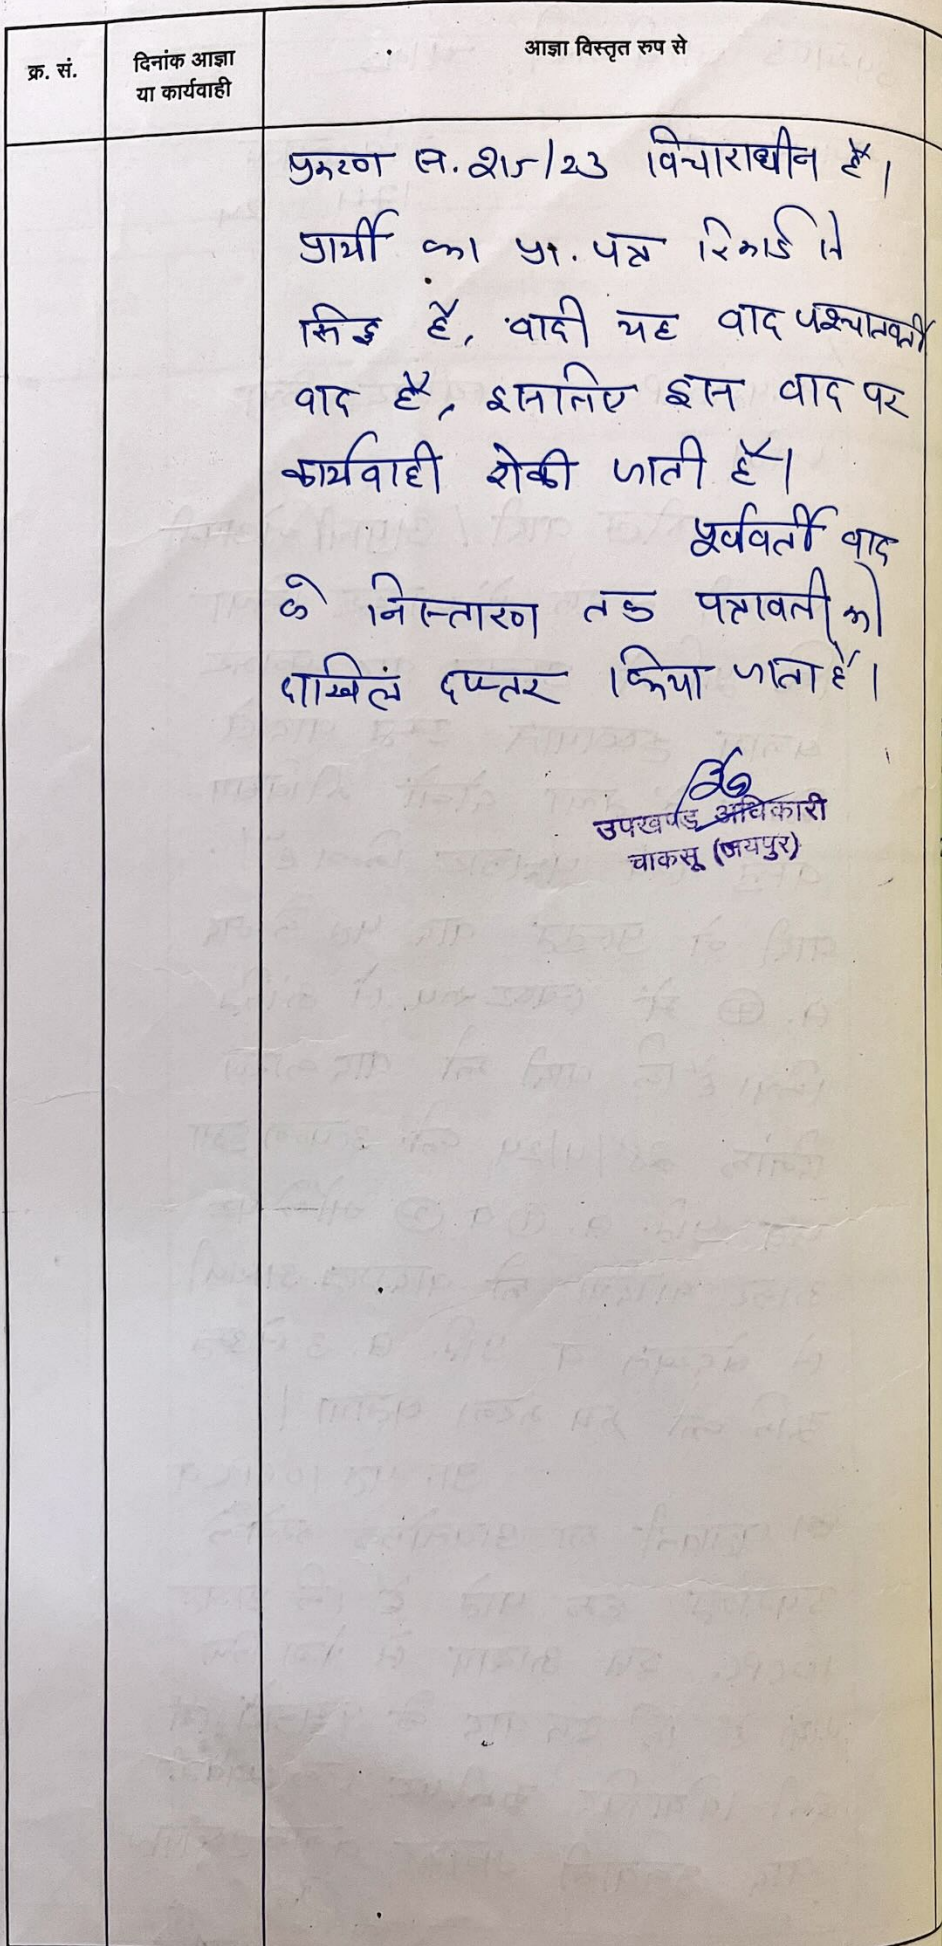 क्र. सं.
दिनांक आज्ञा
या कार्यवाही
आज्ञा विस्तृत रुप से
प्रकरण स. 215/23 विचाराधीन है।
प्रार्थी का प्रा. पत्र रिकार्ड से
सिद्ध है, वादी यह वाद पश्चातवर्ती
वाद है, इसलिए इस वाद पर
कार्यवाही रोकी जाती है।
पूर्ववर्ती वाद
के निस्तारण तक पत्रावली को
दाखिल दफ्तर किया जाता है।
उपखण्ड अधिकारी
चाकसू (जयपुर)